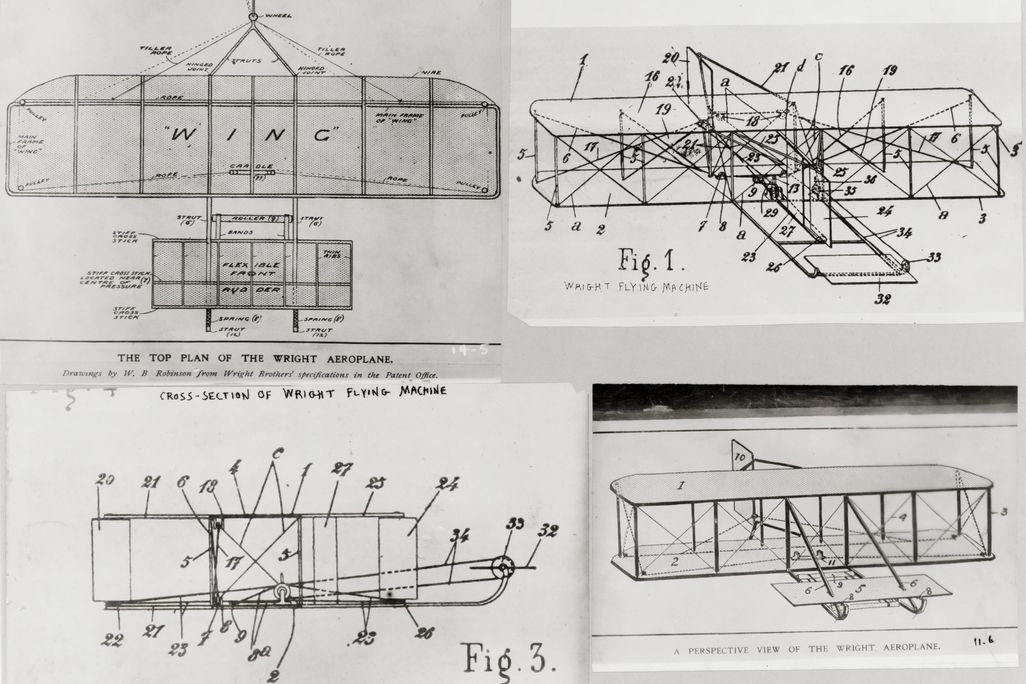 WHEEL
TILLER
ROPE
TILLER
ROPE
HINGED
JOINT
STRUTS
HINGED
JOINT
WIRE
ROPE
PULLEY
MAIN FRAME
OF "WING"
PULLEY
MAIN
FRAME
OF
"WING"
"WING"
CRADLE
(11)
PULLEY
ROPE
ROPE
PULLEY
STRUT
(6)
ROLLER (9)
STRUT
(6)
BANDS
STIFF
CROSS
STICK
FLEXIBLE
FRONT
RUDDER
THIN
RIBS
STIFF CROSS STICK
LOCATED NEAR (7)
CENTRE OF
PRESSURE
STIFF
CROSS
STICK
SPRING (8)
SPRING (8)
STRUT
(12)
STRUT
(12)
14-5
THE TOP PLAN OF THE WRIGHT AEROPLANE.
Drawings by W. B Robinson from Wright Brothers' specifications in the Patent Office.
20 21 d c
1 16 a 16 19
19 18
5 6 17 5 21 23 23 25 17 6 5
36
9 29 13 35
5 a 2 7 8 a 27 24 34 a 3
23 26 33
32
Fig. 1.
WRIGHT FLYING MACHINE
CROSS-SECTION OF WRIGHT FLYING MACHINE
20 21 6 4 c 1 27 25 24
34 33 32
5 17 5
22 21 23 7 8 9 8a 2 23 26
Fig. 3.
10
1
3
4
2
11
6 9 5 6
8 8
A PERSPECTIVE VIEW OF THE WRIGHT AEROPLANE.
11.6